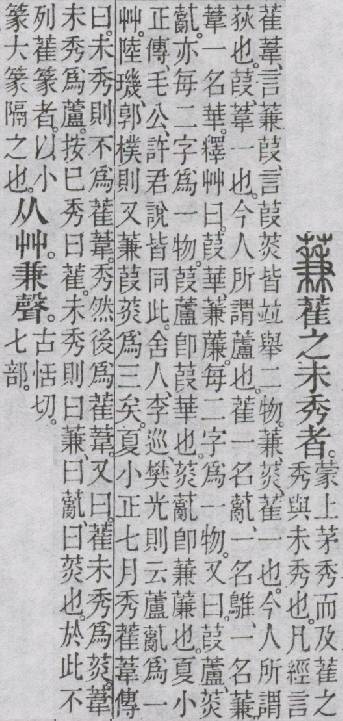 蒹萑之未秀者。
蒙上茅秀而及萑之
秀與未秀也。凡經言
萑葦、言蒹葭、言葭菼皆竝舉二物。蒹、菼、萑一也。今人所謂
荻也。葭、葦一也。今人所謂蘆也。萑一名薍、一名鵻、一名蒹。
葦一名華。釋艸曰。葭華。蒹薕。每二字爲一物。又曰。葭蘆。菼
薍。亦每二字爲一物。葭蘆卽葭華也。菼薍卽蒹薕也。夏小
正傳毛公、許君說皆同此。舍人、李巡、樊光則云蘆薍爲一
艸。陸璣、郭樸則又蒹葭菼爲三矣。夏小正七月秀萑葦傳
曰。未秀則不爲萑葦。秀然後爲萑葦。又曰。萑未秀爲菼。葦
未秀爲蘆。按已秀曰萑。未秀則曰蒹、曰薍、曰菼也。於此不
列萑篆者。以小
篆大篆隔之也。
从艸。兼聲。
古恬切。
七部。